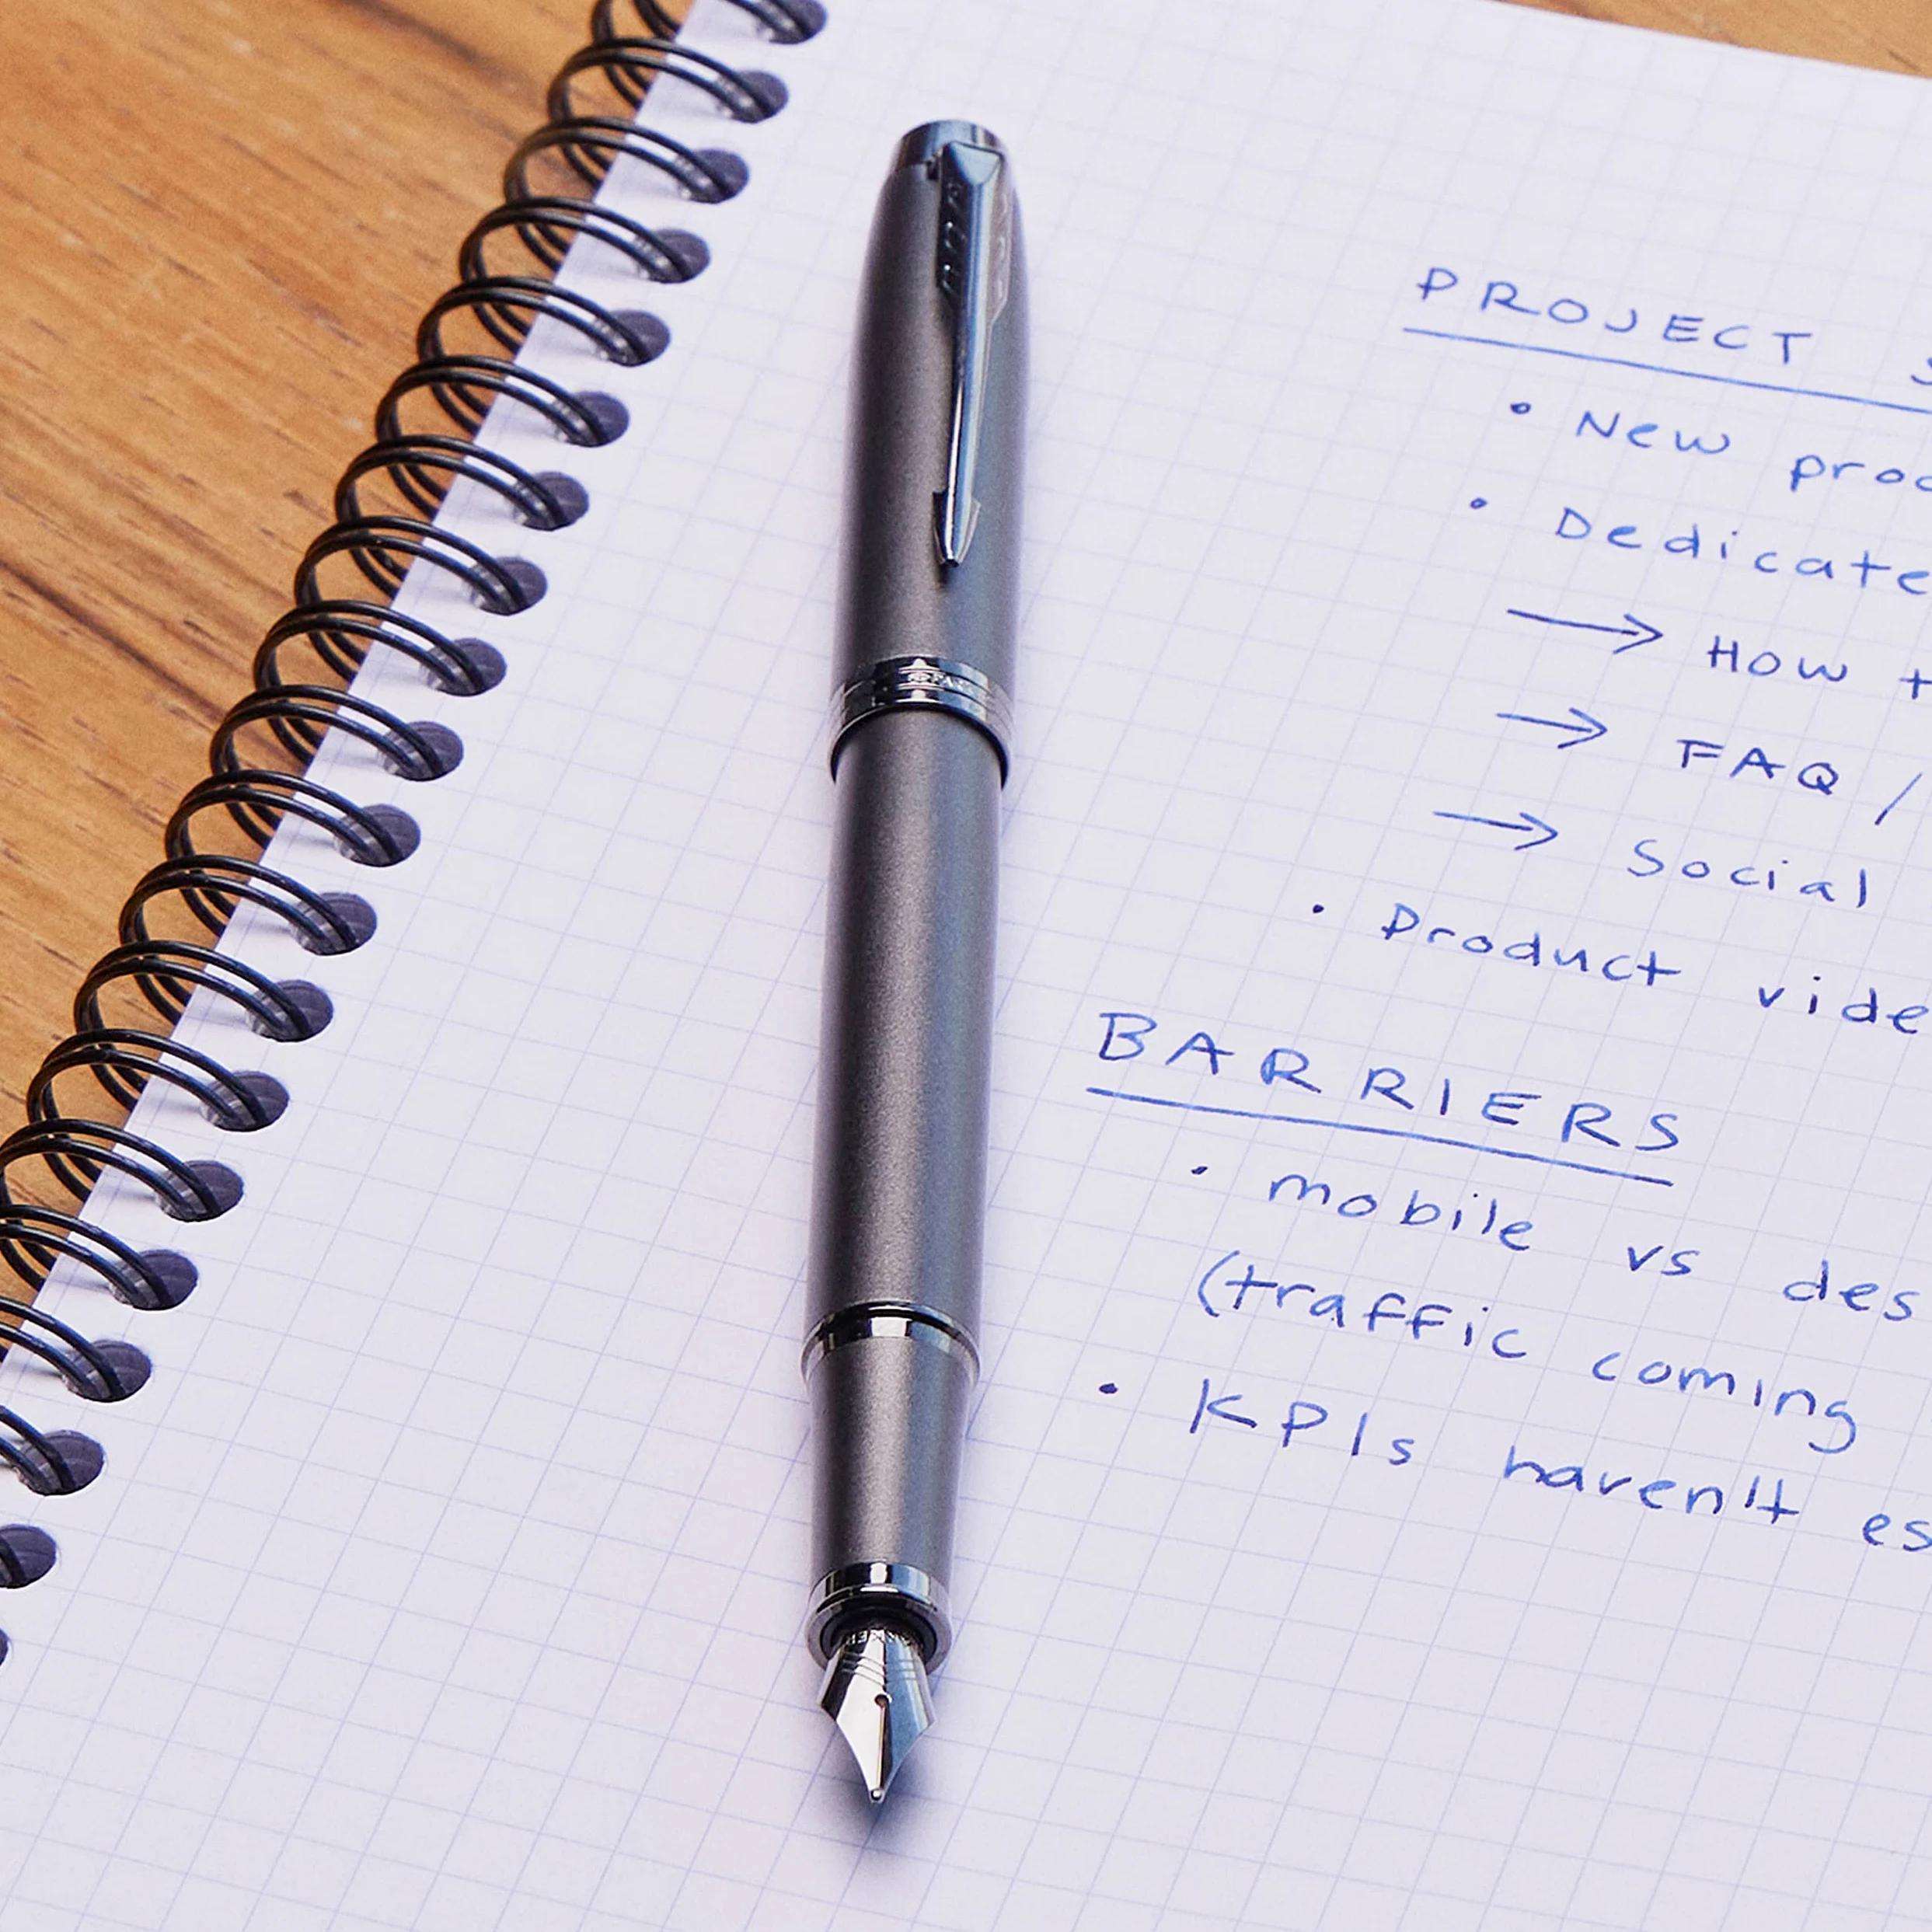 PROJECT S
• New prod
• Dedicate
→ How t
→ FAQ /
→ Social
• Product vide
BARRIERS
• mobile vs des
(traffic coming
• KPIs haven't es
PARKER